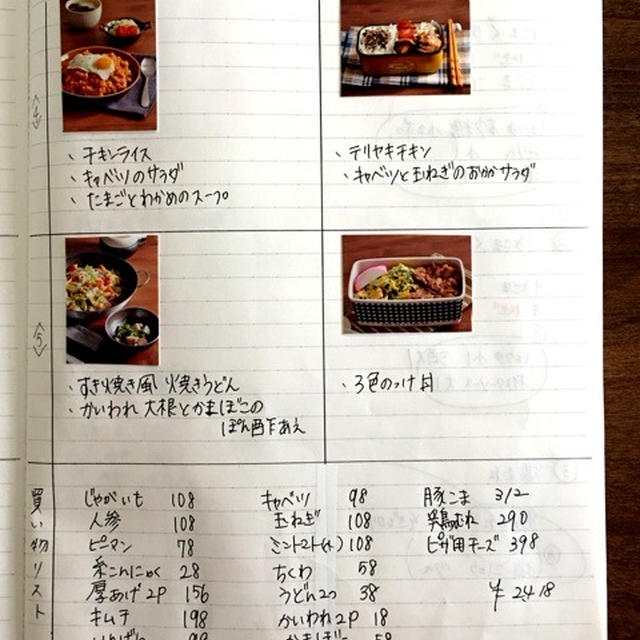 <4>
、チキンライス
、キャベツのサラダ
、たまごとわかめのスープ
、テリヤキチキン
、キャベツと玉ねぎのおかかサラダ
<5>
・すき焼き風 焼きうどん
・かいわれ大根とかまぼこの
ぽん酢あえ
・3色のっけ丼
買い物リスト
じゃがいも 108
人参 108
ピーマン 78
糸こんにゃく 28
厚あげ2P 156
キムチ 198
いんげん 98
キャベツ 98
玉ねぎ 108
ミニトマト(小) 108
ちくわ 58
うどん2コ 38
かいわれ2P 18
かまぼこ 58
豚こま 312
鶏むね 290
ピザ用チーズ 398
¥ 2418